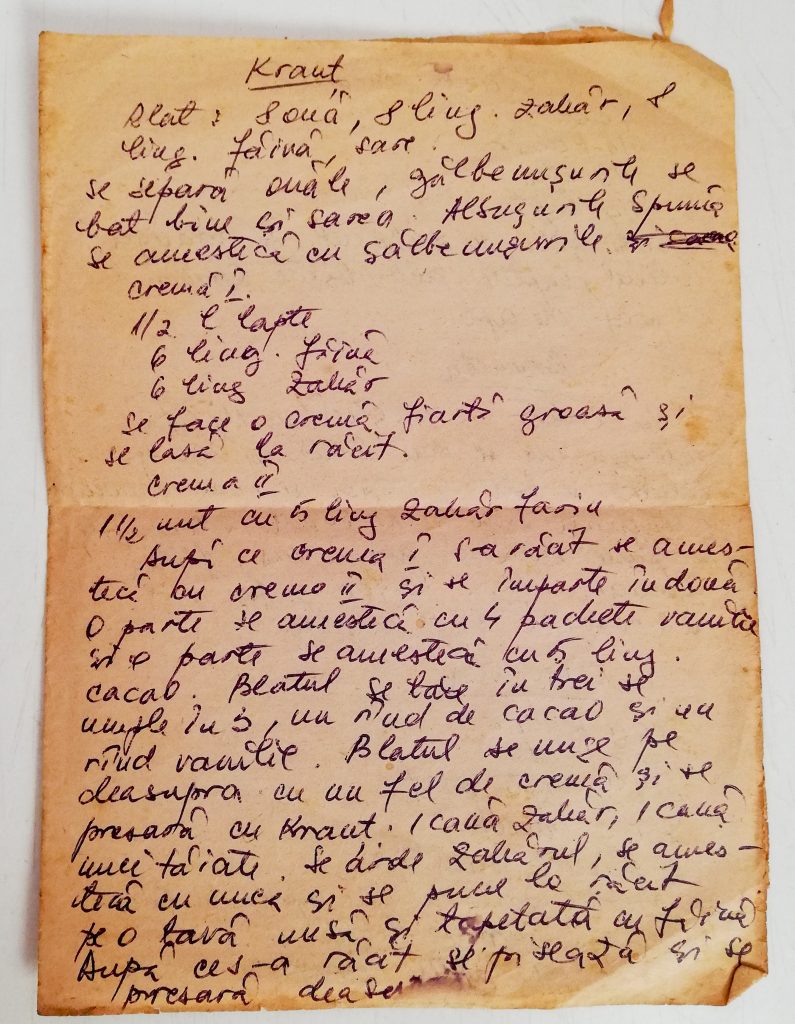 Kraut
Blat: 8 ouă, 8 ling. zahăr, 8
ling. făină, sare.
se separă ouăle, gălbenușurile se
bat bine și sarea. Albușurile spumă
se amestecă cu gălbenușurile
cremă I.
1/2 l lapte
6 ling. făină
6 ling zahăr
se face o cremă fiartă groasă și
se lasă la răcit.
crema II
1 1/2 unt cu 5 ling zahăr farin
După ce crema I s-a răcit se ames-
tecă cu crema II și se împarte în două
O parte se amestecă cu 4 pachete vanilie
și o parte se amestecă cu 5 ling.
cacao. Blatul se taie în trei se
umple în 3, un rînd de cacao și un
rînd vanilie. Blatul se unge pe
deasupra cu un fel de cremă și se
presară cu Kraut. 1 cană zahăr, 1 cană
nuci tăiate. Se arde zahărul, se ames-
tecă cu nuca și se pune la răcit
pe o tavă unsă și tapetată cu făină
După ce s-a răcit se pisează și se
presară